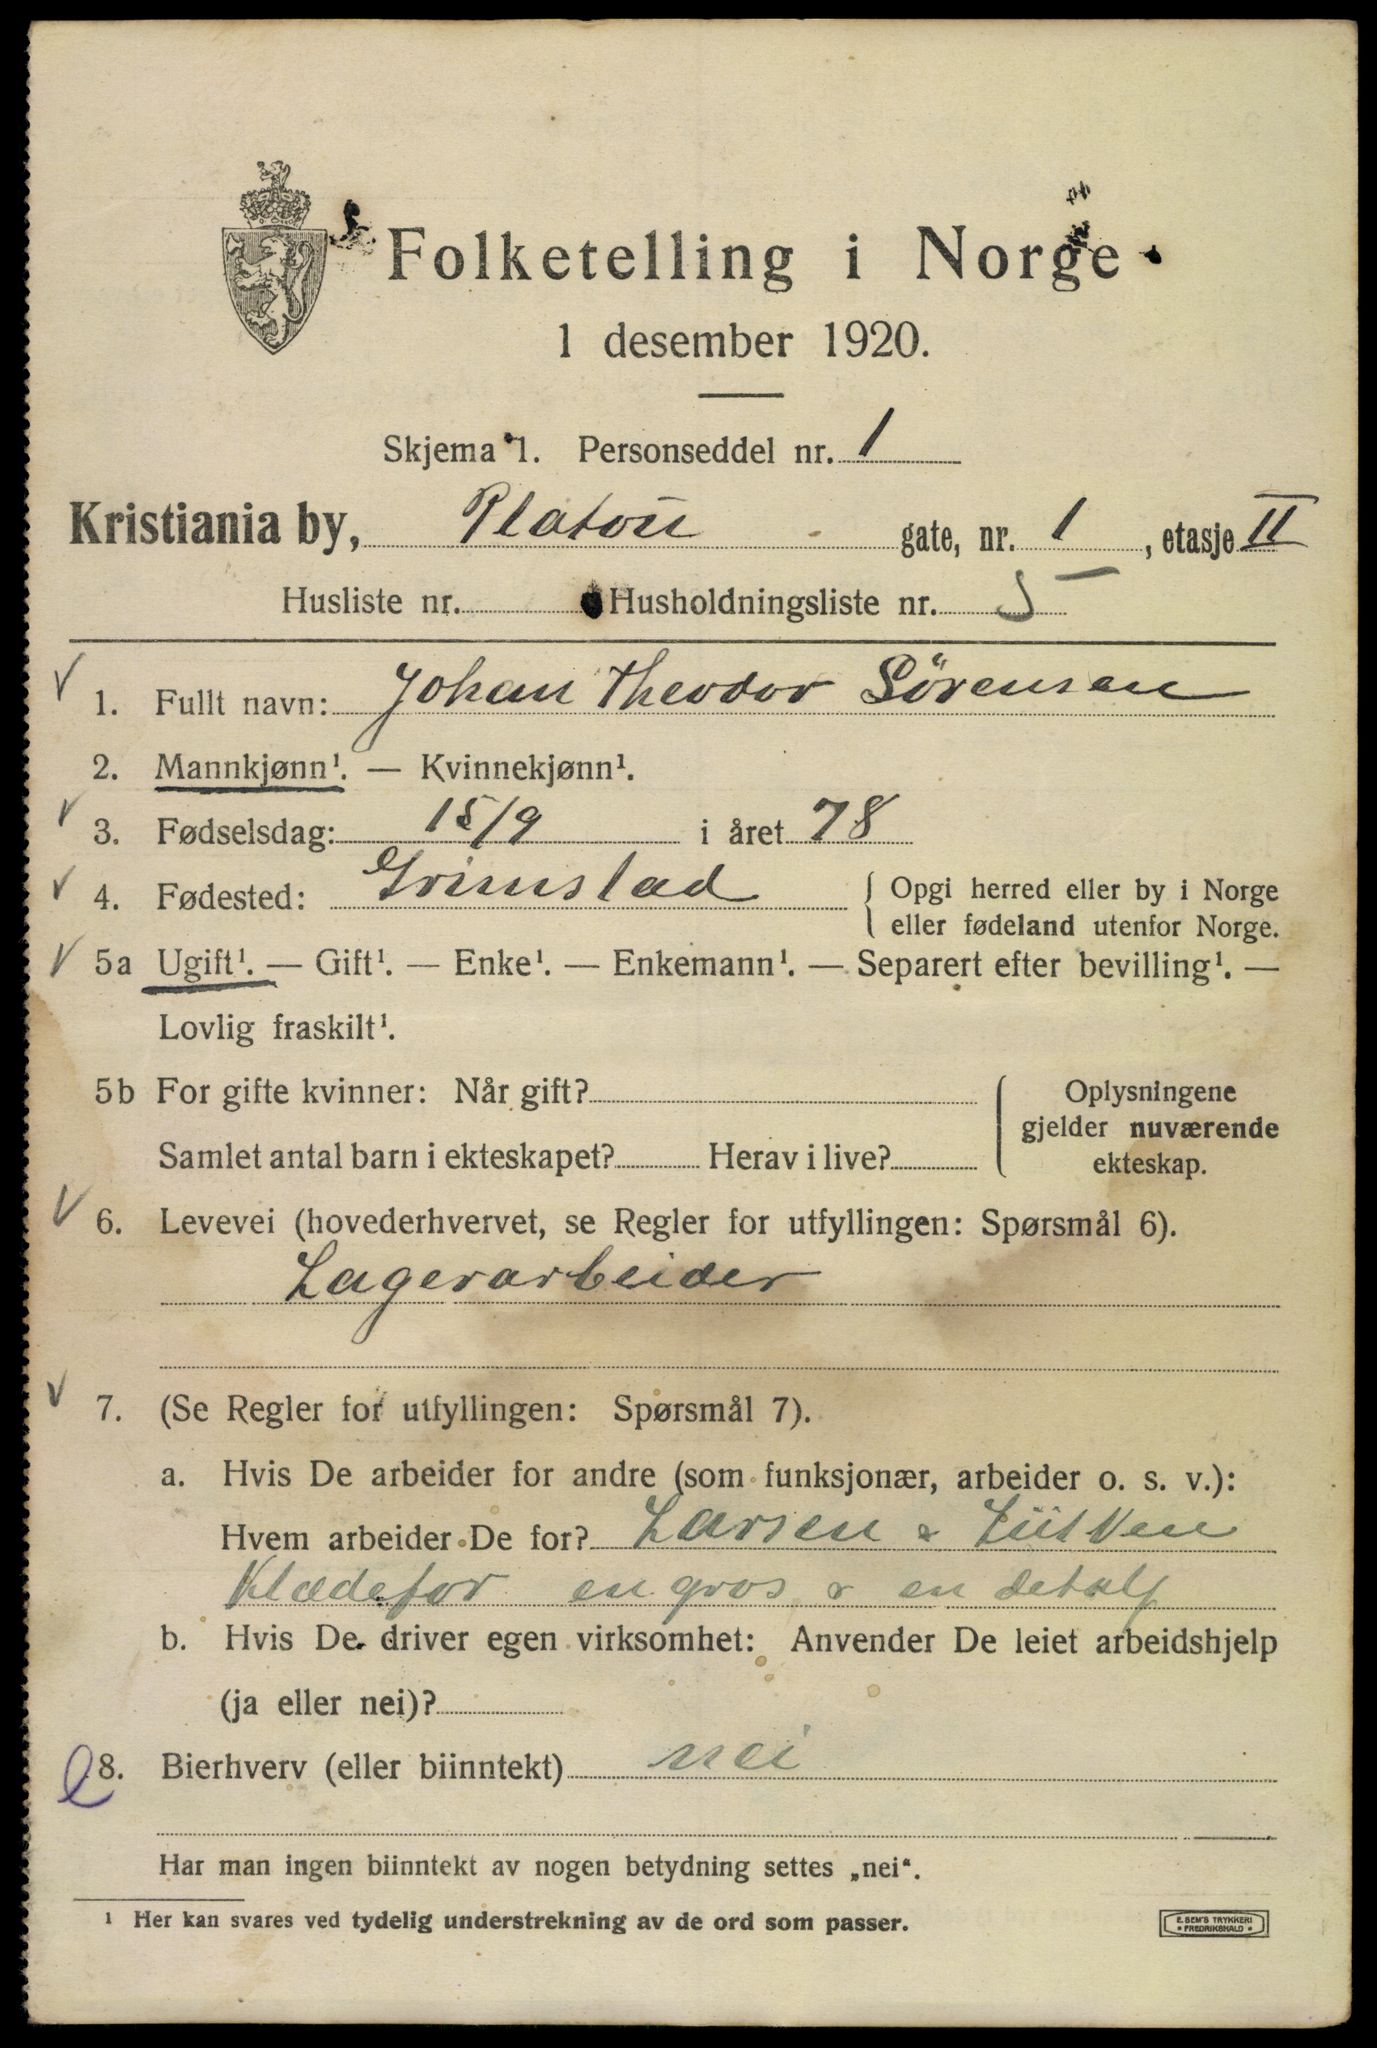 Folketelling i Norge
1 desember 1920.
Skjema 1. Personseddel nr. 1
Kristiania by, Platou gate, nr. 1, etasje II
Husliste nr. Husholdningsliste nr. 5
1. Fullt navn: Johan Theodor Sörensen
2. Mannkjønn¹. — Kvinnekjønn¹.
3. Fødselsdag: 15/9 i året 78
4. Fødested: Grimstad { Opgi herred eller by i Norge
eller fødeland utenfor Norge.
5a Ugift¹. — Gift¹. — Enke¹. — Enkemann¹. — Separert efter bevilling¹. —
Lovlig fraskilt¹.
5b For gifte kvinner: Når gift? Oplysningene
gjelder nuværende
Samlet antal barn i ekteskapet? Herav i live? ekteskap.
6. Levevei (hovederhvervet, se Regler for utfyllingen: Spørsmål 6).
Lagerarbeider
7. (Se Regler for utfyllingen: Spørsmål 7).
a. Hvis De arbeider for andre (som funksjonær, arbeider o. s. v.):
Hvem arbeider De for? Larsen &
Klædefor en gros & en detalj
b. Hvis De driver egen virksomhet: Anvender De leiet arbeidshjelp
(ja eller nei)?
8. Bierhverv (eller biinntekt) nei
Har man ingen biinntekt av nogen betydning settes „nei“.
¹ Her kan svares ved tydelig understrekning av de ord som passer.
E. SEM'S TRYKKERI
• FREDRIKSHALD •